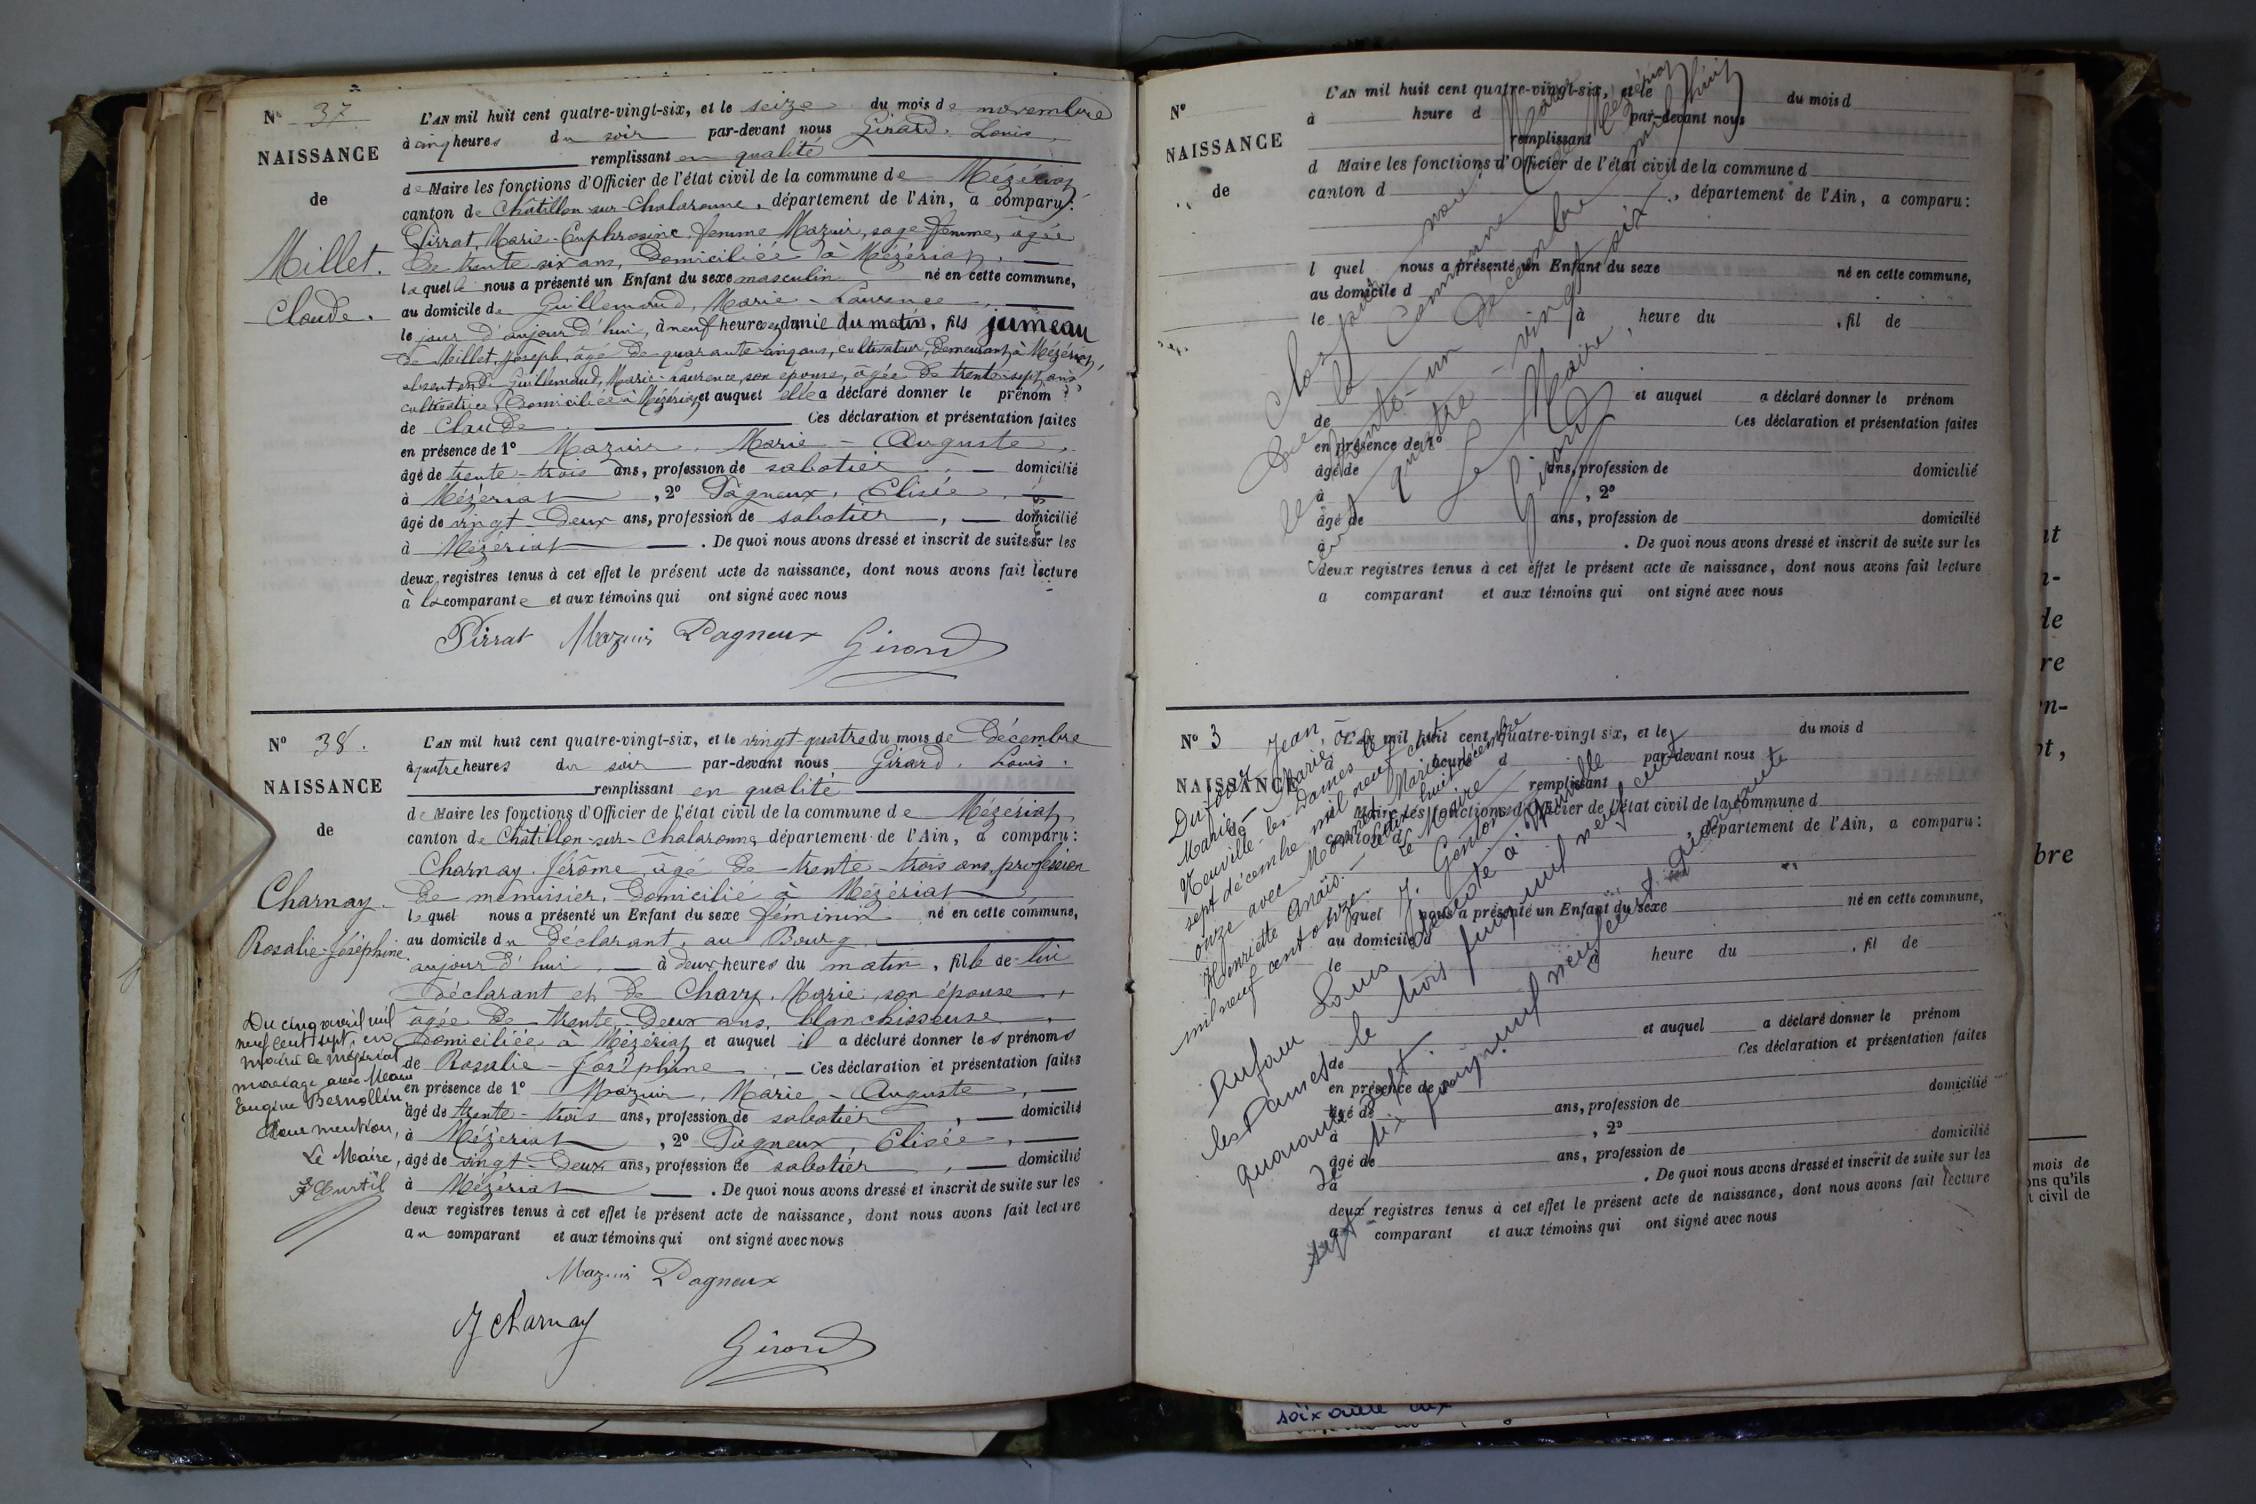 N° 37
NAISSANCE
de
Millet.
Claude.
L'AN mil huit cent quatre-vingt-six, et le seize du mois de novembre
à cinq heures du soir par-devant nous Girard, Louis,
remplissant en qualité
de Maire les fonctions d'Officier de l'état civil de la commune de Mézériat,
canton de Châtillon-sur-Chalaronne, département de l'Ain, a comparu:
Pirrat, Marie-Euphrosine, femme Mazuir, sage-femme, âgée
de trente six ans, domiciliée à Mézériat,
laquelle nous a présenté un Enfant du sexe masculin né en cette commune,
au domicile de Guillemaud, Marie-Laurence,
le jour d'aujourd'hui, à neuf heures et demie du matin, fils jumeau
de Millet, Joseph, âgé de quarante-cinq ans, cultivateur, demeurant à Mézériat,
absent et de Guillemaud, Marie-Laurence, son épouse, âgée de trente-sept ans,
cultivatrice, domiciliée à Mézériat, et auquel elle a déclaré donner le prénom
de Claude. Ces déclaration et présentation faites
en présence de 1° Mazuir, Marie-Auguste,
âgé de trente-trois ans, profession de sabotier, domicilié
à Mézériat, 2° Pagneux, Elisée,
âgé de vingt-deux ans, profession de sabotier, domicilié
à Mézériat. De quoi nous avons dressé et inscrit de suite sur les
deux registres tenus à cet effet le présent acte de naissance, dont nous avons fait lecture
à la comparante et aux témoins qui ont signé avec nous
Pirrat Mazuir Pagneux Girard
N° 38.
NAISSANCE
de
Charnay.
Rosalie-Joséphine.
L'AN mil huit cent quatre-vingt-six, et le vingt-quatre du mois de Décembre
à quatre heures du soir par-devant nous Girard, Louis,
remplissant en qualité
de Maire les fonctions d'Officier de l'état civil de la commune de Mézériat,
canton de Châtillon-sur-Chalaronne, département de l'Ain, a comparu:
Charnay, Jérôme, âgé de trente-trois ans, profession
de menuisier, domicilié à Mézériat,
lequel nous a présenté un Enfant du sexe féminin né en cette commune,
au domicile du déclarant, au Bourg
aujourd'hui, à deux heures du matin, fille de lui
déclarant et de Chavy, Marie, son épouse,
âgée de trente-deux ans, blanchisseuse,
domiciliée à Mézériat, et auquel il a déclaré donner les prénoms
de Rosalie-Joséphine. Ces déclaration et présentation faites
en présence de 1° Mazuir, Marie-Auguste,
âgé de trente-trois ans, profession de sabotier, domicilié
à Mézériat, 2° Pagneux, Elisée,
âgé de vingt-deux ans, profession de sabotier, domicilié
à Mézériat. De quoi nous avons dressé et inscrit de suite sur les
deux registres tenus à cet effet le présent acte de naissance, dont nous avons fait lecture
au comparant et aux témoins qui ont signé avec nous
Mazuir Pagneux
J Charnay
Girard
Du cinq avril mil
neuf cent sept, en
mairie de Mézériat
mariage avec
Eugène Bernollin
Pour mention,
Le Maire,
Curtil
N°
NAISSANCE
de
L'AN mil huit cent quatre-vingt-six, et le du mois d
à heure d par-devant nous
remplissant
d Maire les fonctions d'Officier de l'état civil de la commune d
canton d , département de l'Ain, a comparu:
l quel nous a présenté un Enfant du sexe né en cette commune,
au domicile d
le à heure du , fil de
et auquel a déclaré donner le prénom
de Ces déclaration et présentation faites
en présence de 1°
âgé de ans, profession de domicilié
à , 2°
âgé de ans, profession de domicilié
à . De quoi nous avons dressé et inscrit de suite sur les
deux registres tenus à cet effet le présent acte de naissance, dont nous avons fait lecture
a comparant et aux témoins qui ont signé avec nous
Clos par nous, Maire
de la Commune de Mézériat
le trente-un décembre mil huit
cent quatre-vingt-six
Le Maire,
Girard
N° 3
NAISSANCE
L'AN mil huit cent quatre-vingt six, et le du mois d
à heure d par-devant nous
remplissant
Maire les fonctions d'Officier de l'état civil de la commune d
canton d , département de l'Ain, a comparu:
quel nous a présenté un Enfant du sexe né en cette commune,
au domicile d
le à heure du , fil de
et auquel a déclaré donner le prénom
de Ces déclaration et présentation faites
en présence de
âgé de ans, profession de domicilié
à , 2°
âgé de ans, profession de domicilié
à . De quoi nous avons dressé et inscrit de suite sur les
deux registres tenus à cet effet le présent acte de naissance, dont nous avons fait lecture
a comparant et aux témoins qui ont signé avec nous
Dufour Jean,
Marie
Neuville-les-Dames le
sept décembre mil neuf cent
onze avec Marie
Henriette Anaïs. huit décembre
mil neuf cent onze. Le Maire
Dufour Louis décédé à Neuville
les Dames le trois juin mil neuf cent
quarante sept
Le dix juin mil neuf cent quarante
sept
soixante dix